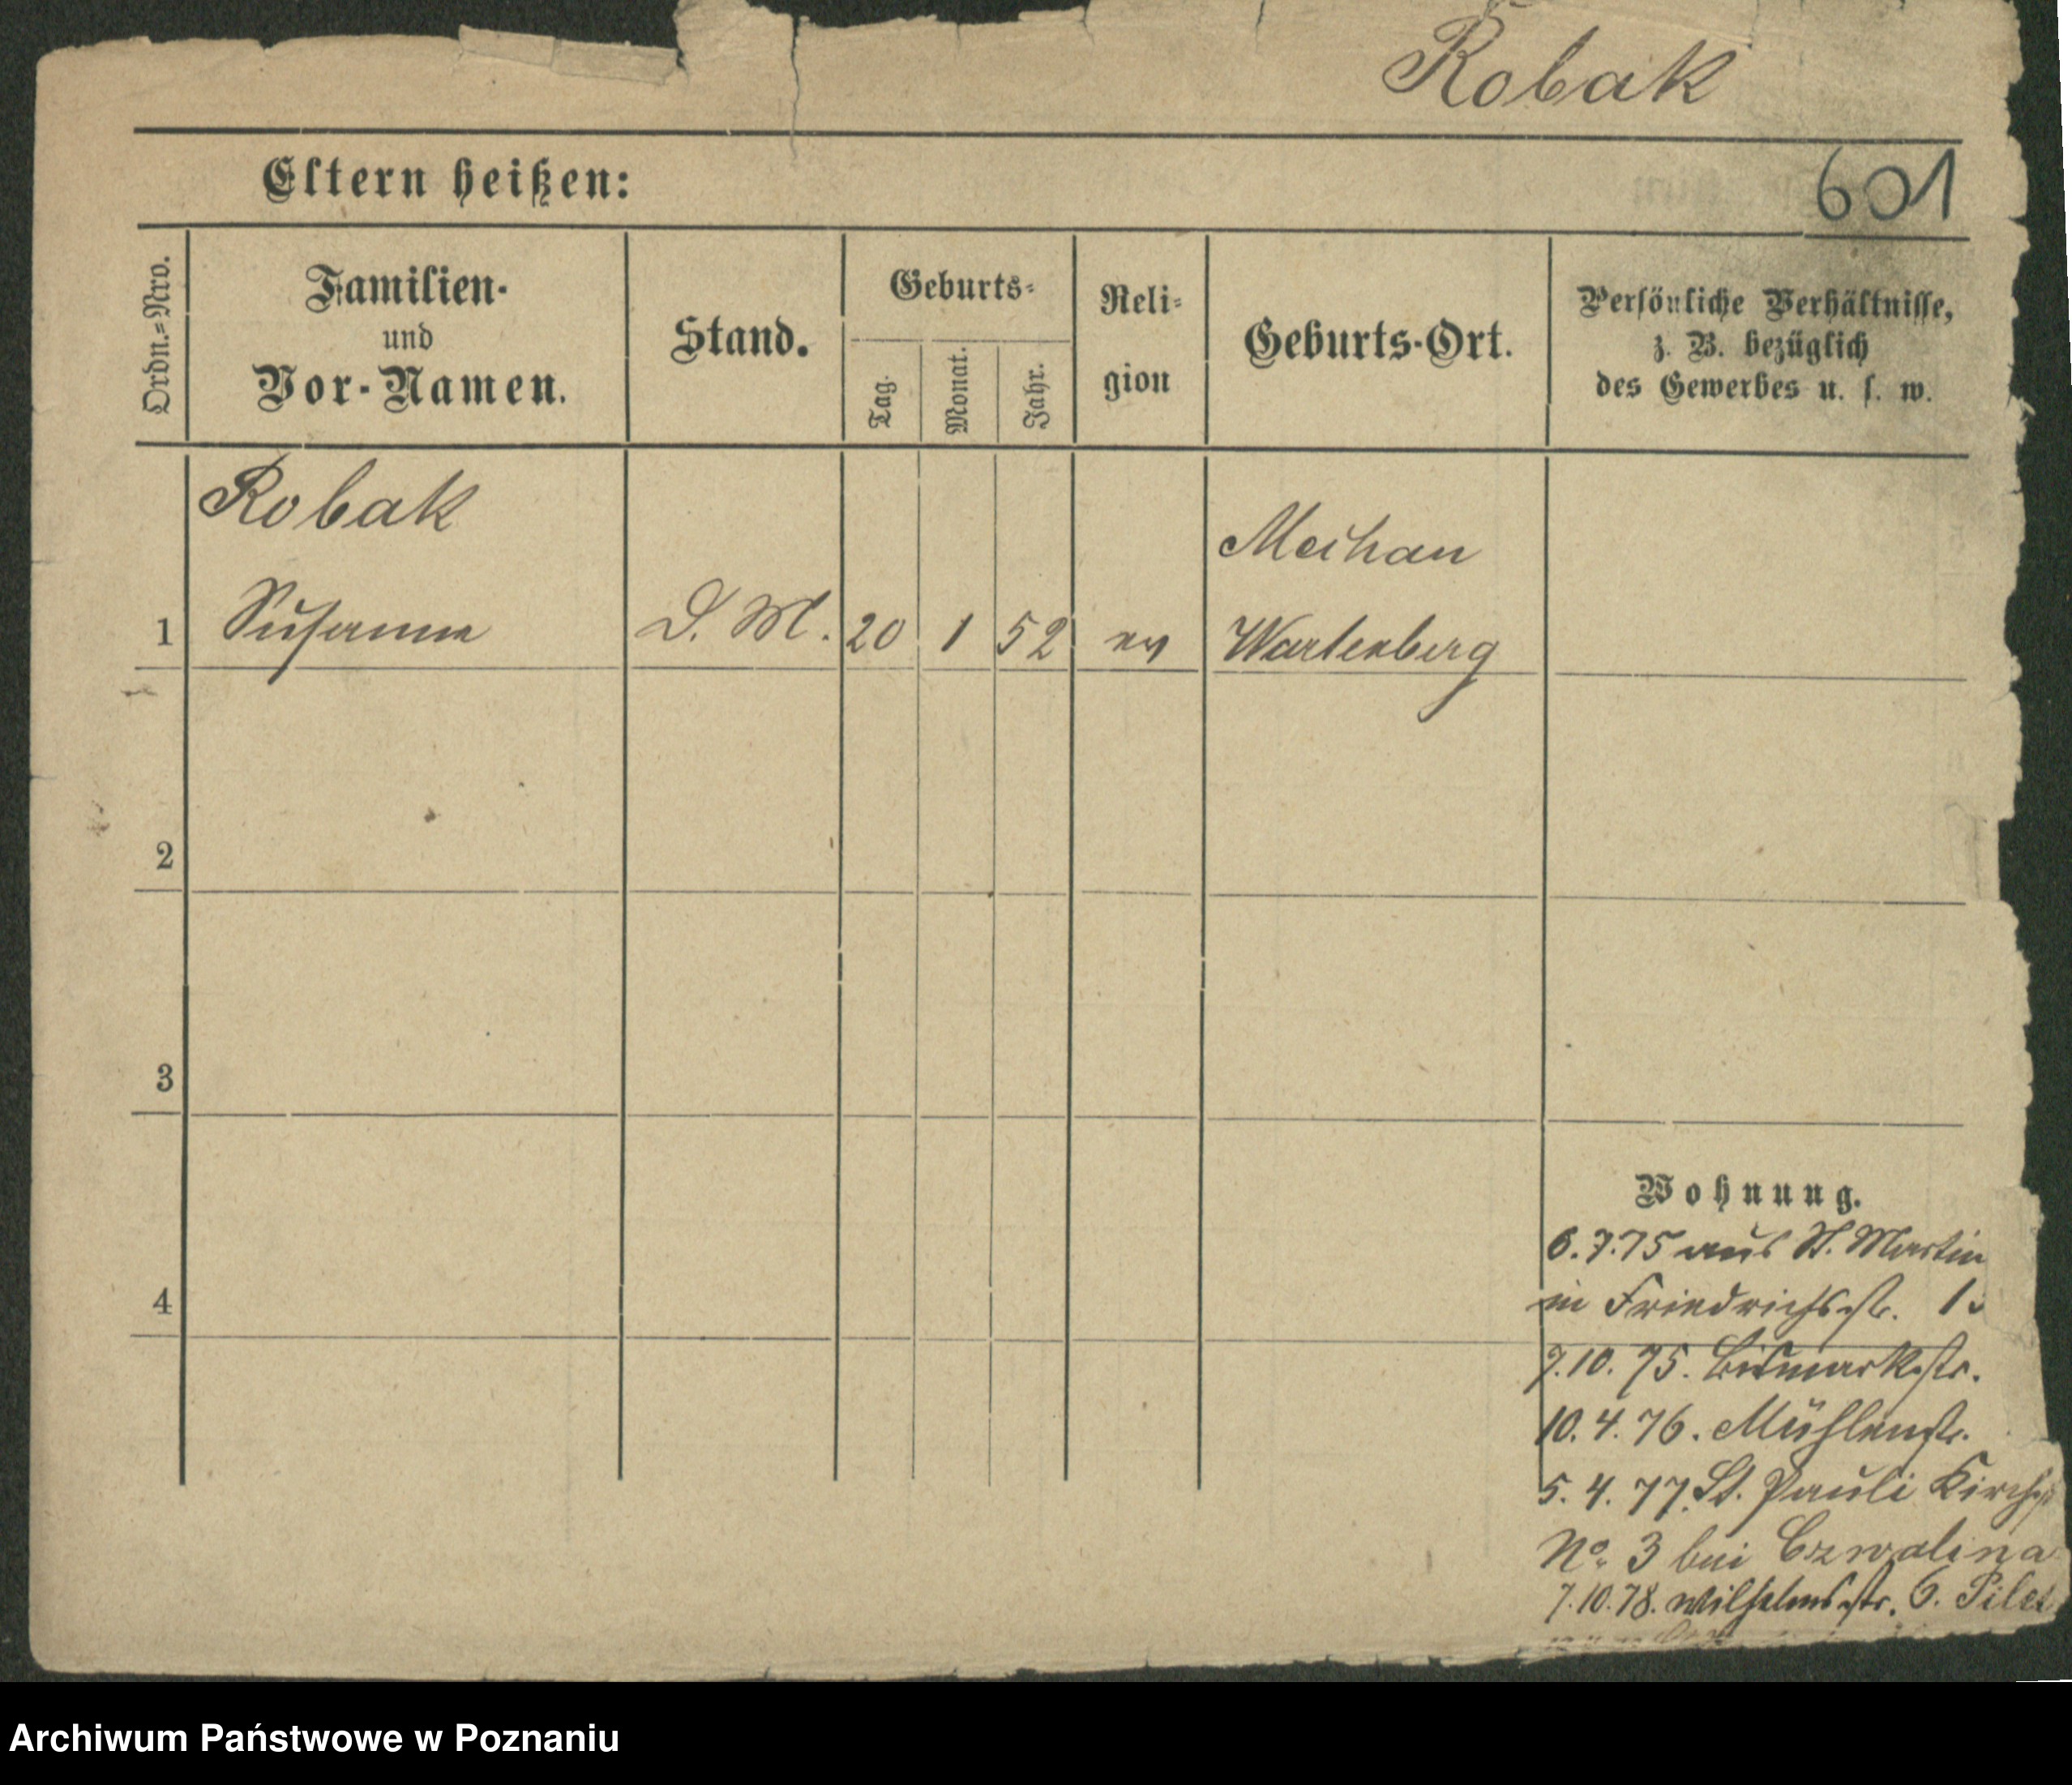 Robak
Eltern heißen:
601
Ordn.=Nro.
Familien-
und
Vor-Namen.
Stand.
Geburts=
Tag.
Monat.
Jahr.
Reli=
gion
Geburts-Ort.
Persönliche Verhältnisse,
z. B. bezüglich
des Gewerbes u. s. w.
Robak
Meihan
1 Susanna D. M. 20 1 52 ev Wartenberg
2
3
Wohnung.
6.7.75 aus St. Martin
4
in Friedrichsstr.
7.10.75. Bismarkstr.
10.4.76. Mühlenstr.
5.4.77. St. Pauli
No. 3 bei Czwalina
7.10.78. Wilhelmsstr. 6.
Archiwum Państwowe w Poznaniu